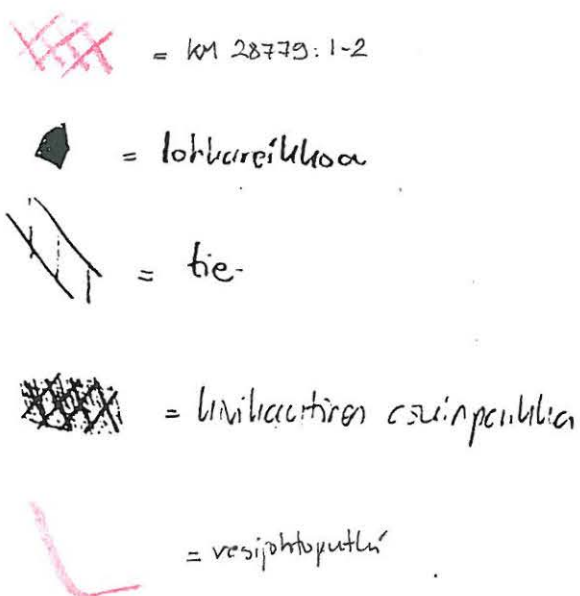 = KM 28779:1-2
= lohkareikkoa
= tie
= kivikautinen asuinpaikka
= vesijohtoputki